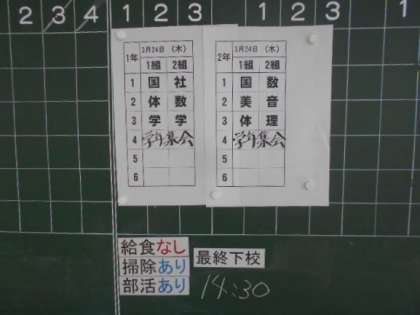 2 3 4 1 2 3 1 2 3 1
1年 3月24日 (木)
1組 2組
1 国 社
2 体 数
3 学 学
4 学年集会
5
6
2年 3月24日 (木)
1組 2組
1 国 数
2 美 音
3 体 理
4 学年集会
5
6
給食なし
掃除あり
部活あり
最終下校
14:30